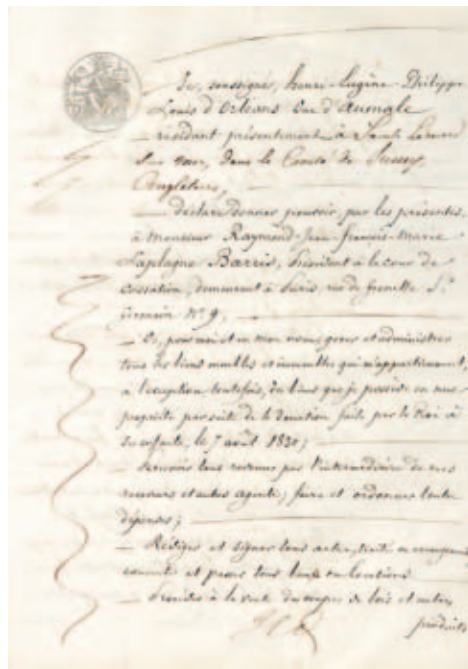 Je, soussigné, henri-Eugène-Philippe
Louis d'Orléans duc d'Aumale
résidant présentement à Saint Léonard
Sur mer, dans le Comté de Sussex,
Angleterre,
déclare donner pouvoir, par les présentes
à Monsieur Raymond-Jean-françois-Marie
Laplagne Barris, Président à la cour de
cassation, demeurant à Paris, rue de Grenelle St.
Germain No. 9,
De, pour moi et en mon nom, gérer et administrer
tous les biens meubles et immeubles qui m'appartiennent,
à l'exception toutefois, des biens que je possède en nue-
propriété par suite de la donation faite par le Roi à
ses enfants, le 7 août 1830;
Percevoir tous revenus par l'intermédiaire de mes
receveurs et autres agents; faire et ordonner toutes
dépenses;
Rédiger et signer tous actes,
et passer tous baux ou locations
Procéder à la vente des coupes de bois et autres
produits